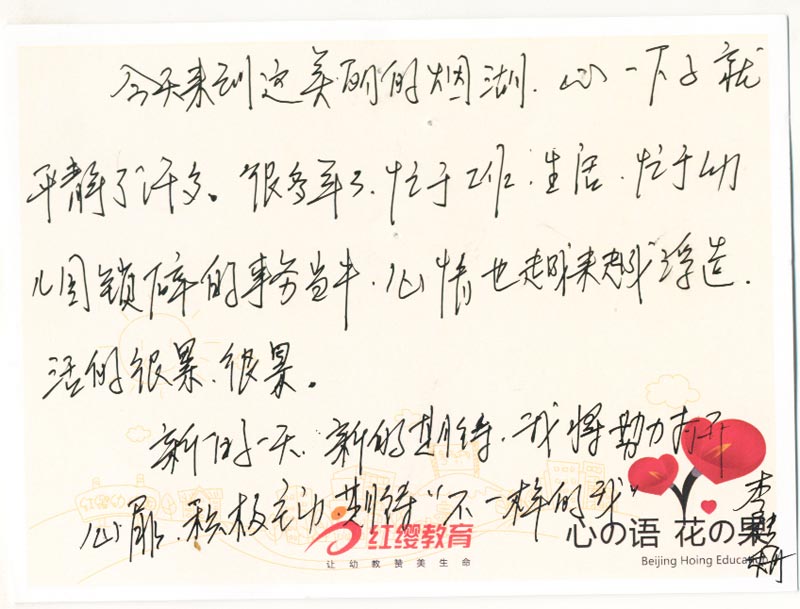 今天来到这美丽的烟湖.心一下子就
平静了许多。很多年了、忙于工作、生活、忙于幼
儿园锁碎的事务当中、心情也越来越浮造.
活的很累、很累。
新的一天、新的期待、我将努力打开
心扉、积极主动、期待“不一样的我”
李
红缨教育
让幼教赞美生命
心の语 花の果
Beijing Hoing Education